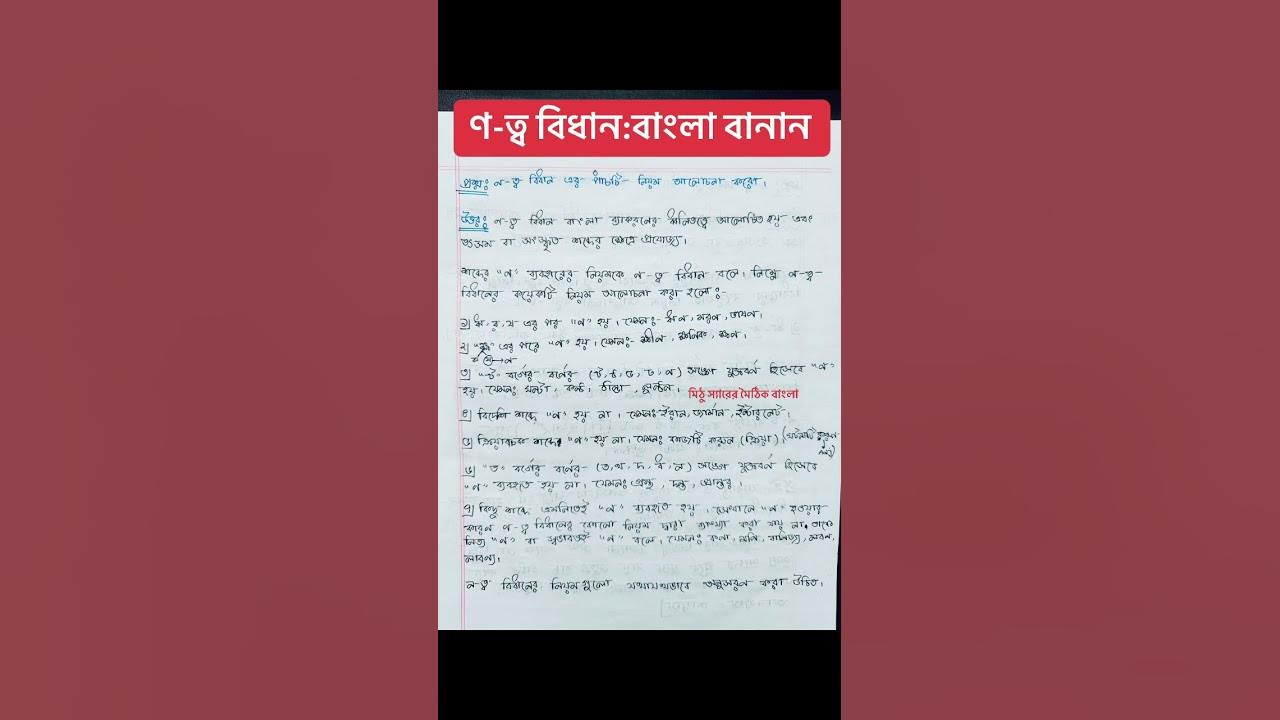 ণ-ত্ব বিধান:বাংলা বানান
প্রশ্নঃ ণ-ত্ব বিধান এর পাঁচটি নিয়ম আলোচনা করো।
উত্তরঃ ণ-ত্ব বিধান বাংলা ব্যাকরণের ধ্বনিতত্ত্বে আলোচিত হয় এবং
তৎসম বা সংস্কৃত শব্দের ক্ষেত্রে প্রযোজ্য।
শব্দের "ণ" ব্যবহারের নিয়মকে ণ-ত্ব বিধান বলে। নিম্নে ণ-ত্ব-
বিধানের কয়েকটি নিয়ম আলোচনা করা হলোঃ-
১) ঋ, র, ষ এর পর "ণ" হয়। যেমনঃ- ঋণ, মরণ, ভাষণ।
২) "ক্ষ" এর পরে "ণ" হয়। যেমনঃ- ক্ষীণ, ক্ষণিক, ক্ষণ।
৩) "ট" বর্গের বর্ণের (ট, ঠ, ড, ঢ, ণ) সঙ্গে যুক্তবর্ণ হিসেবে "ণ"
হয়। যেমনঃ ঘণ্টা, কণ্ঠ, ঠাণ্ডা, লুণ্ঠন।
মিঠু স্যারের মৈঠিক বাংলা
৪) বিদেশি শব্দে "ণ" হয় না। যেমনঃ ইরান, জার্মান, ইন্টারনেট।
৫) ক্রিয়াবাচক শব্দের "ণ" হয় না। যেমনঃ কাজটি করুন (ক্রিয়া)
৬) "ত" বর্গের বর্ণের- (ত, থ, দ, ধ, ন) সঙ্গে যুক্তবর্ণ হিসেবে
"ণ" ব্যবহৃত হয় না। যেমনঃ গ্রন্থ, দন্ত,
৭) কিছু শব্দে এমনিতেই "ণ" ব্যবহৃত হয়, সেখানে "ণ" হওয়ার
কারণ ণ-ত্ব বিধানের কোনো নিয়ম দ্বারা ব্যাখ্যা করা যায় না। তাকে
নিত্য "ণ" বা স্বভাবতই "ণ" বলে। যেমনঃ কণা, মণি, বাণিজ্য, লবণ,
লাবণ্য।
ণ-ত্ব বিধানের নিয়মগুলো যথাযথভাবে অনুসরণ করা উচিত।